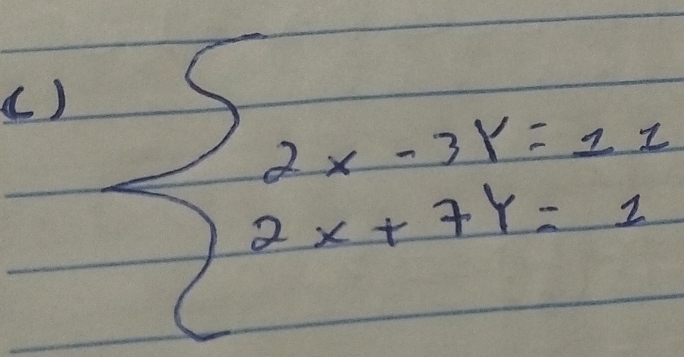 c)
2x - 3Y = 11
2x + 7Y = 1